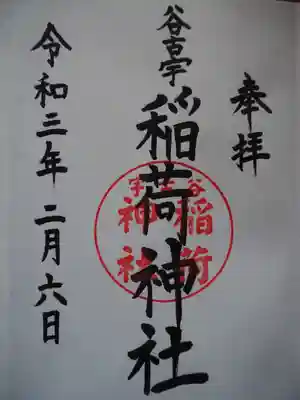 奉拝
谷古宇
稲荷神社
令和三年二月六日
谷古宇
稲荷
神社